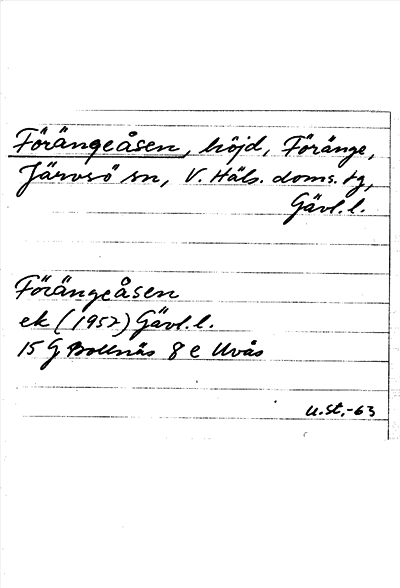 Förängeåsen, höjd, Föränge,
Järvsö sn, V. Häls. doms. tg,
Gävl. l.
Förängeåsen
ek (1957) Gävl. l.
15 G Bollnäs 8 e Uvås
U.St.-63